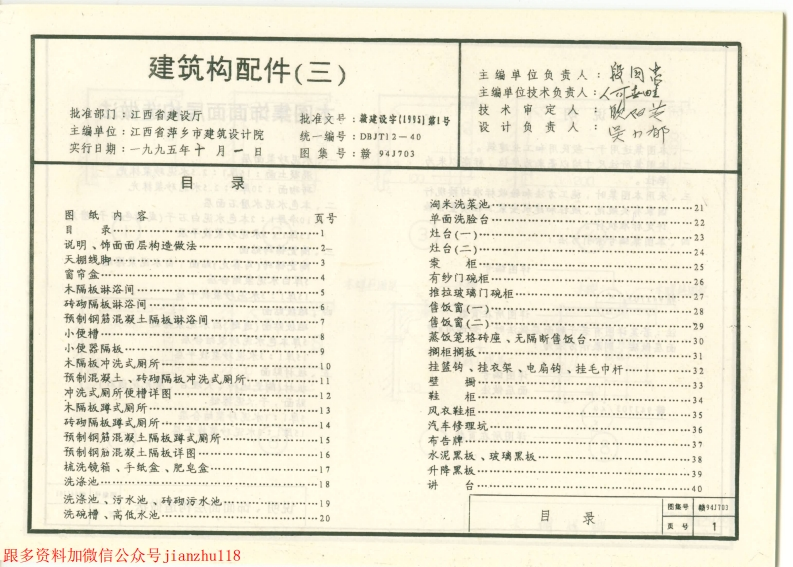 建筑构配件(三)
批准部门：江西省建设厅
主编单位：江西省萍乡市建筑设计院
实行日期：一九九五年十月一日
批准文号：赣建设字[1995]第1号
统一编号：DBJT12—40
图集号：赣 94J703
主编单位负责人：
主编单位技术负责人：
技术审定人：
设计负责人：
目 录
图纸内容 页号
目 录 1
说明、饰面面层构造做法 2
天棚线脚 3
窗帘盒 4
木隔板淋浴间 5
砖砌隔板淋浴间 6
预制钢筋混凝土隔板淋浴间 7
小便槽 8
小便器隔板 9
木隔板冲洗式厕所 10
预制混凝土、砖砌隔板冲洗式厕所 11
冲洗式厕所便槽详图 12
木隔板蹲式厕所 13
砖砌隔板蹲式厕所 14
预制钢筋混凝土隔板蹲式厕所 15
预制钢筋混凝土隔板详图 16
梳洗镜箱、手纸盒、肥皂盒 17
洗涤池 18
洗涤池、污水池、砖砌污水池 19
洗碗槽、高低水池 20
淘米洗菜池 21
单面洗脸台 22
灶台(一) 23
灶台(二) 24
案 柜 25
有纱门碗柜 26
推拉玻璃门碗柜 27
售饭窗(一) 28
售饭窗(二) 29
蒸饭笼格砖座、无隔断售饭台 30
搁柜搁板 31
挂篮钩、挂衣架、电扇钩、挂毛巾杆 32
壁 橱 33
鞋 柜 34
风衣鞋柜 35
汽车修理坑 36
布告牌 37
水泥黑板、玻璃黑板 38
升降黑板 39
讲 台 40
目 录
图集号 赣94J703
页号 1
跟多资料加微信公众号jianzhu118